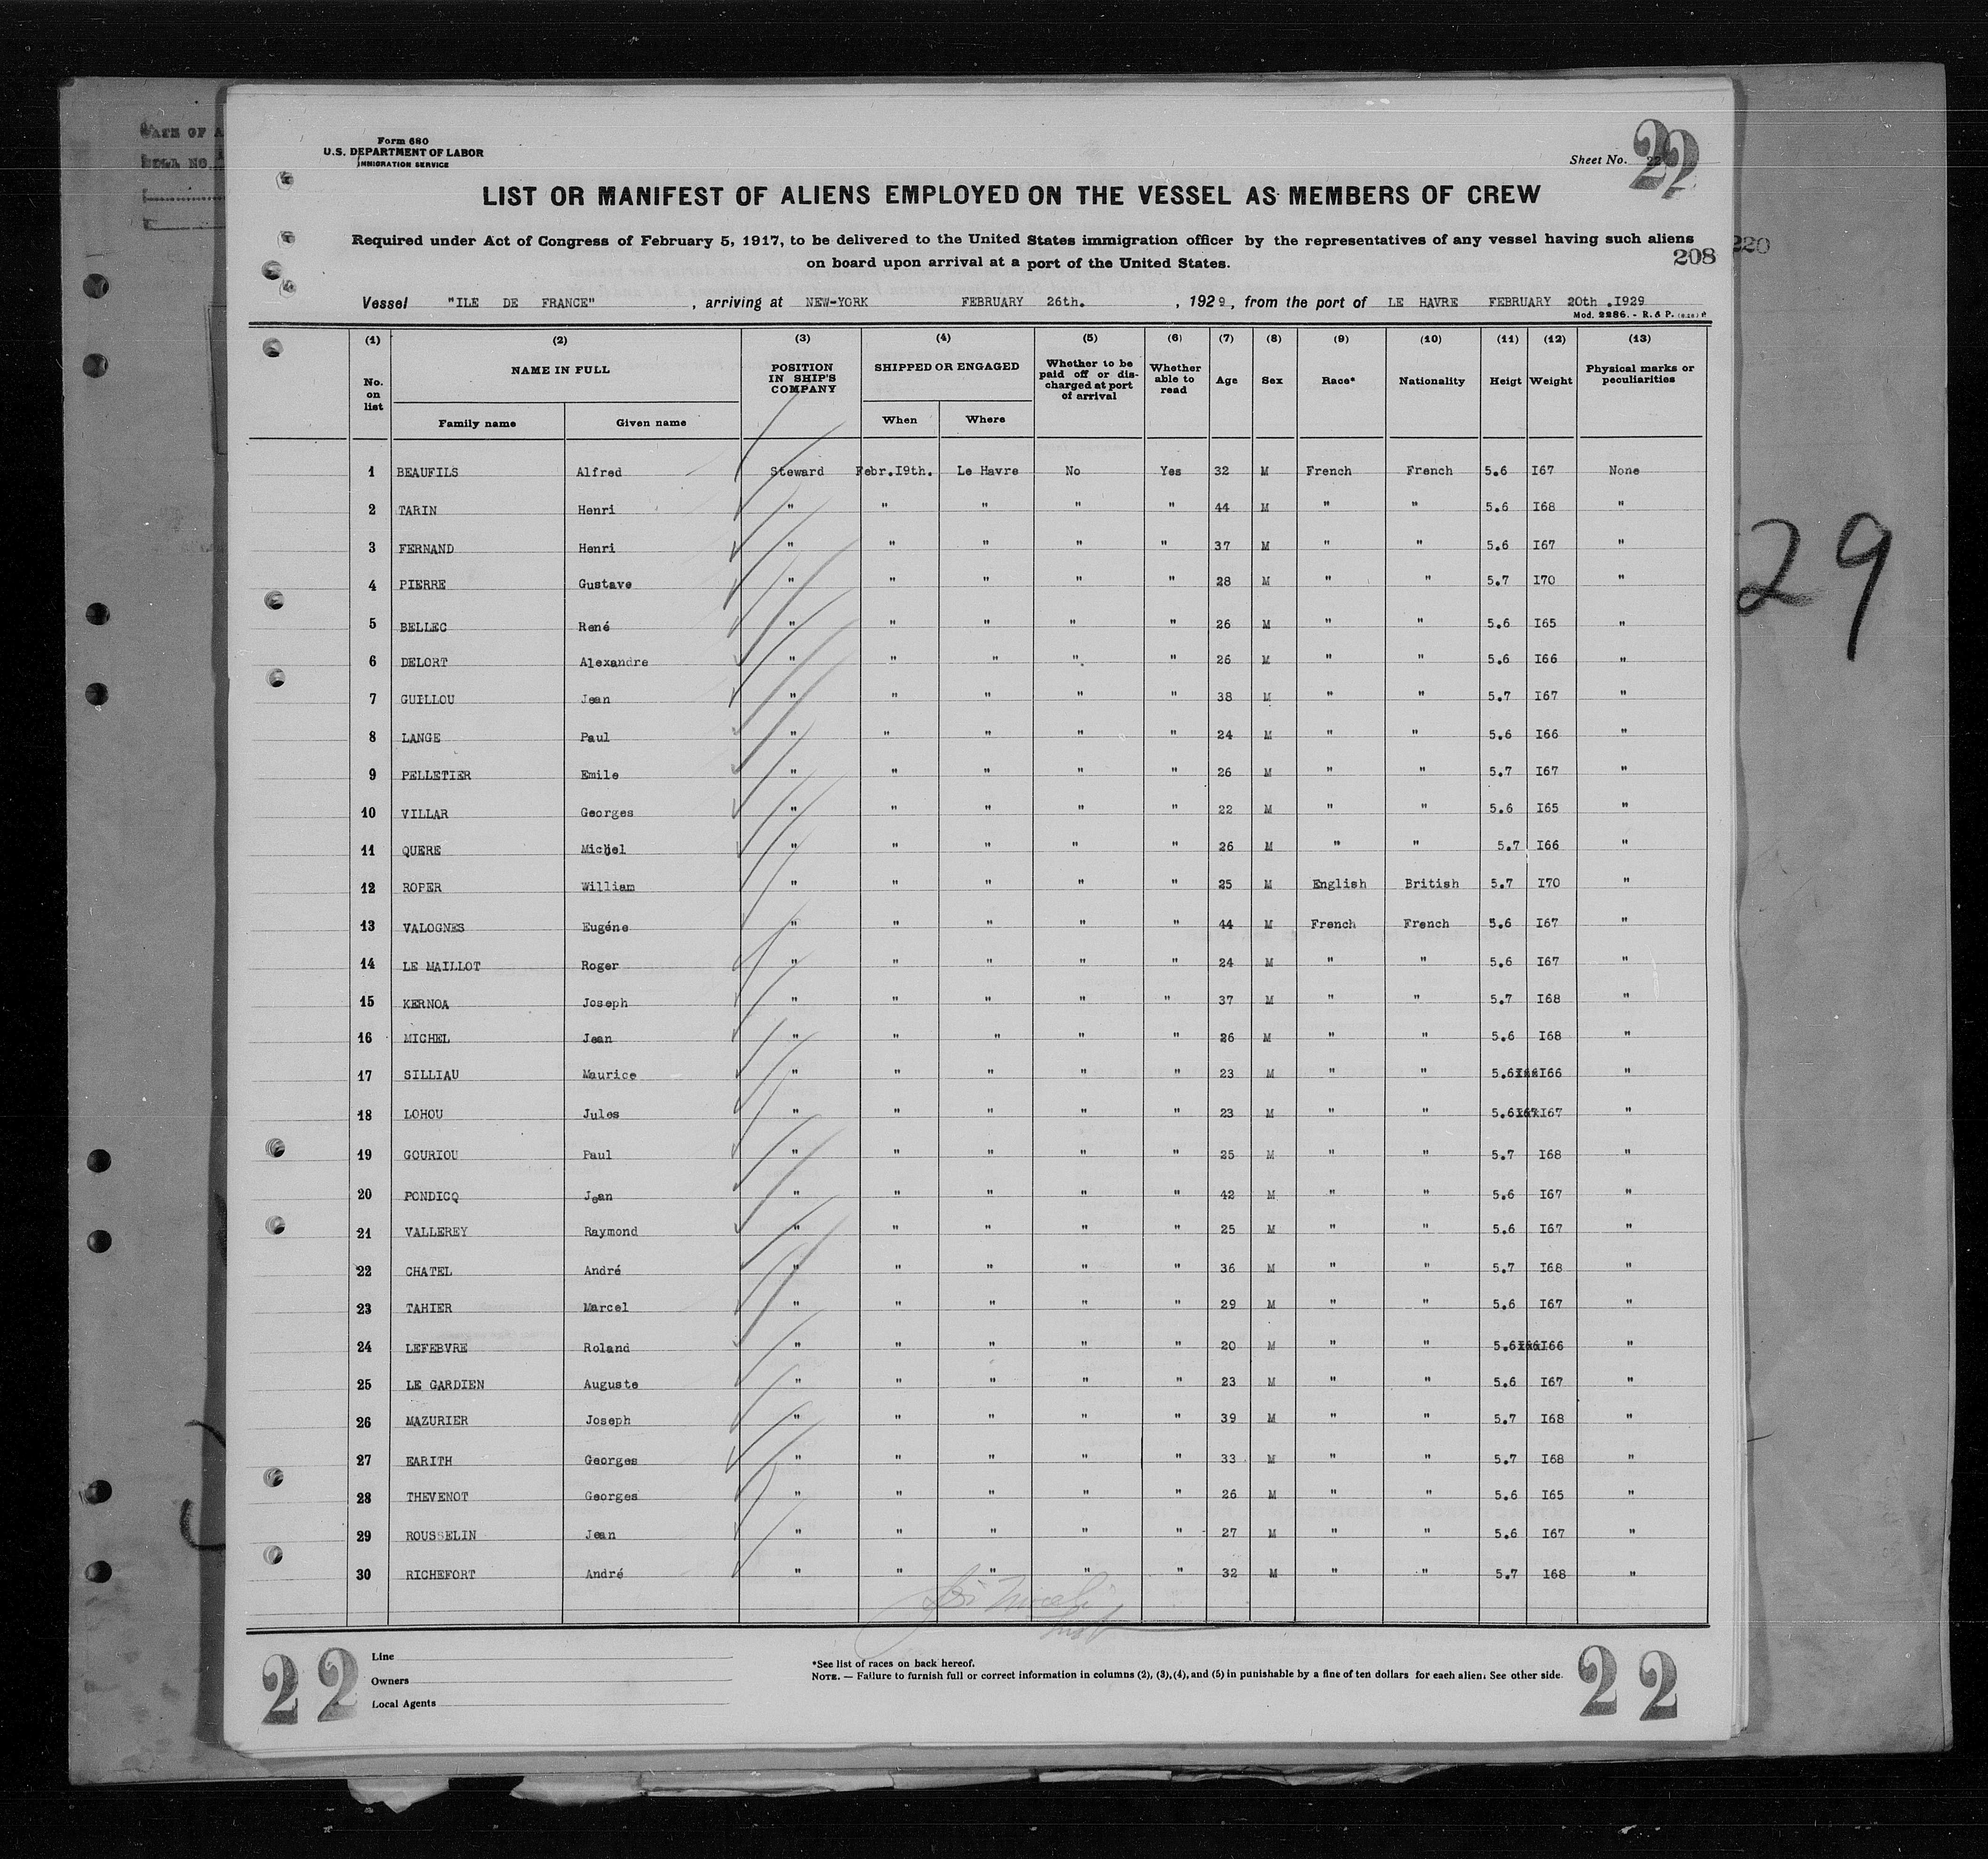 Form 680
U.S. DEPARTMENT OF LABOR
IMMIGRATION SERVICE
Sheet No. 22
22
LIST OR MANIFEST OF ALIENS EMPLOYED ON THE VESSEL AS MEMBERS OF CREW
Required under Act of Congress of February 5, 1917, to be delivered to the United States immigration officer by the representatives of any vessel having such aliens
on board upon arrival at a port of the United States.
208
220
Vessel "ILE DE FRANCE" , arriving at NEW-YORK FEBRUARY 26th. , 1929, from the port of LE HAVRE FEBRUARY 20th .I929
Mod. 2286. - R. & P.
(1) (2) (3) (4) (5) (6) (7) (8) (9) (10) (11) (12) (13)
No. on list NAME IN FULL Family name Given name POSITION IN SHIP'S COMPANY SHIPPED OR ENGAGED When Where Whether to be paid off or discharged at port of arrival Whether able to read Age Sex Race* Nationality Heigt Weight Physical marks or peculiarities
1 BEAUFILS Alfred Steward Febr.I9th. Le Havre No Yes 32 M French French 5.6 I67 None
2 TARIN Henri " " " " " 44 M " " 5.6 I68 "
3 FERNAND Henri " " " " " 37 M " " 5.6 I67 "
4 PIERRE Gustave " " " " " 28 M " " 5.7 I70 "
5 BELLEC René " " " " " 26 M " " 5.6 I65 "
6 DELORT Alexandre " " " " " 26 M " " 5.6 I66 "
7 GUILLOU Jean " " " " " 38 M " " 5.7 I67 "
8 LANGE Paul " " " " " 24 M " " 5.6 I66 "
9 PELLETIER Emile " " " " " 26 M " " 5.7 I67 "
10 VILLAR Georges " " " " " 22 M " " 5.6 I65 "
11 QUERE Michel " " " " " 26 M " " 5.7 I66 "
12 ROPER William " " " " " 25 M English British 5.7 I70 "
13 VALOGNES Eugéne " " " " " 44 M French French 5.6 I67 "
14 LE MAILLOT Roger " " " " " 24 M " " 5.6 I67 "
15 KERNOA Joseph " " " " " 37 M " " 5.7 I68 "
16 MICHEL Jean " " " " " 26 M " " 5.6 I68 "
17 SILLIAU Maurice " " " " " 23 M " " 5.6 I66 "
18 LOHOU Jules " " " " " 23 M " " 5.6 I67 "
19 GOURIOU Paul " " " " " 25 M " " 5.7 I68 "
20 PONDICQ Jean " " " " " 42 M " " 5.6 I67 "
21 VALLEREY Raymond " " " " " 25 M " " 5.6 I67 "
22 CHATEL André " " " " " 36 M " " 5.7 I68 "
23 TAHIER Marcel " " " " " 29 M " " 5.6 I67 "
24 LEFEBVRE Roland " " " " " 20 M " " 5.6 I66 "
25 LE GARDIEN Auguste " " " " " 23 M " " 5.6 I67 "
26 MAZURIER Joseph " " " " " 39 M " " 5.7 I68 "
27 EARITH Georges " " " " " 33 M " " 5.7 I68 "
28 THEVENOT Georges " " " " " 26 M " " 5.6 I65 "
29 ROUSSELIN Jean " " " " " 27 M " " 5.6 I67 "
30 RICHEFORT André " " " " " 32 M " " 5.7 I68 "
29
Line
Owners
Local Agents
*See list of races on back hereof.
NOTE. — Failure to furnish full or correct information in columns (2), (3), (4), and (5) in punishable by a fine of ten dollars for each alien. See other side.
22
22